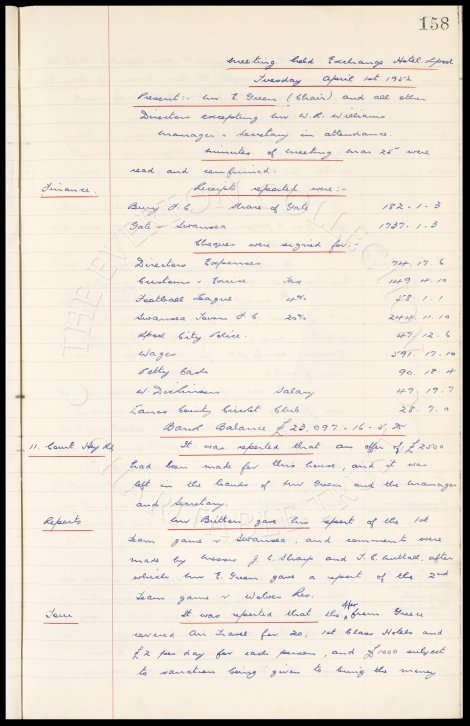 158
Meeting held Exchange Hotel Lpool
Tuesday April 1st 1952
Present:- Mr E. Green (Chair) and all other
Directors excepting Mr W. R. Williams
Manager & Secretary in attendance.
Minutes of meeting Mar 25 were
read and confirmed.
Finance. Receipts reported were:-
Bury F.C. Share of Gate 182 - 1 - 3
Gate v Swansea 1737 - 1 - 3
Cheques were signed for:-
Directors Expenses 74 . 17 . 6
Customs & Excise Tax 149 . 4 . 10
Football League 4% 58 . 1 . 1
Swansea Town F.C. 20% 244 . 11 . 10
Lpool City Police. 47 . 12 . 6
Wages 591 . 17 . 10
Petty Cash 90 . 18 . 4
W. Dickinson Salary 49 . 19 . 7
Lancs County Cricket Club 28 . 7 . 0
Bank Balance £ 23,097 - 16 - 5
11. Court Hey Rd It was reported that an offer of £2500
had been made for this house, and it was
left in the hands of Mr Green, and the Manager
and Secretary.
Reports Mr Britton gave his report of the 1st
team game v Swansea, and comments were
made by Messrs J. C. Sharp and T. C. Nuttall, after
which Mr E. Green gave a report of the 2nd
Team game v Wolves Res.
Tour It was reported that the offer from Greece
covered Air Travel for 20, 1st Class Hotels and
£2 per day for each person, and £1000 subject
to sanction being given to bring the money
THE EVERTON COLLECTION
CHARITABLE TRUST